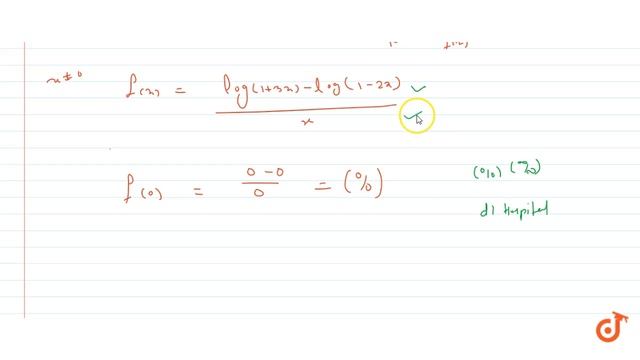 x ≠ 0 f(x) = log(1+3x) - log(1-2x) / x
f(0) = 0 - 0 / 0 = (0/0)
(0/0) (∞/∞)
d l Hospital